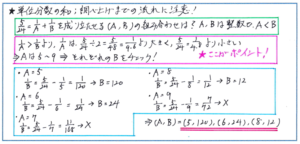 ★単位分数の和、調べ上げまでの流れに注意!
5/24=1/A+1/Bを成り立たせる(A,B)の組み合わせは? A,Bは整数で、A<B
A>Bより、1/Aは5/24÷2=5/48=1/9.6より大きく、5/24=1/4.8より小さい
⇒Aは5〜9→それぞれのBをチェック! ★ここがポイント!
・A=5
1/B=5/24-1/5=1/120→B=120
・A=6
1/B=5/24-1/6=1/24→B=24
・A=7
1/B=5/24-1/7=11/168→×
・A=8
1/B=5/24-1/8=1/12→B=12
・A=9
1/B=5/24-1/9=7/72→×
⇒(A,B)=(5,120),(6,24),(8,12)